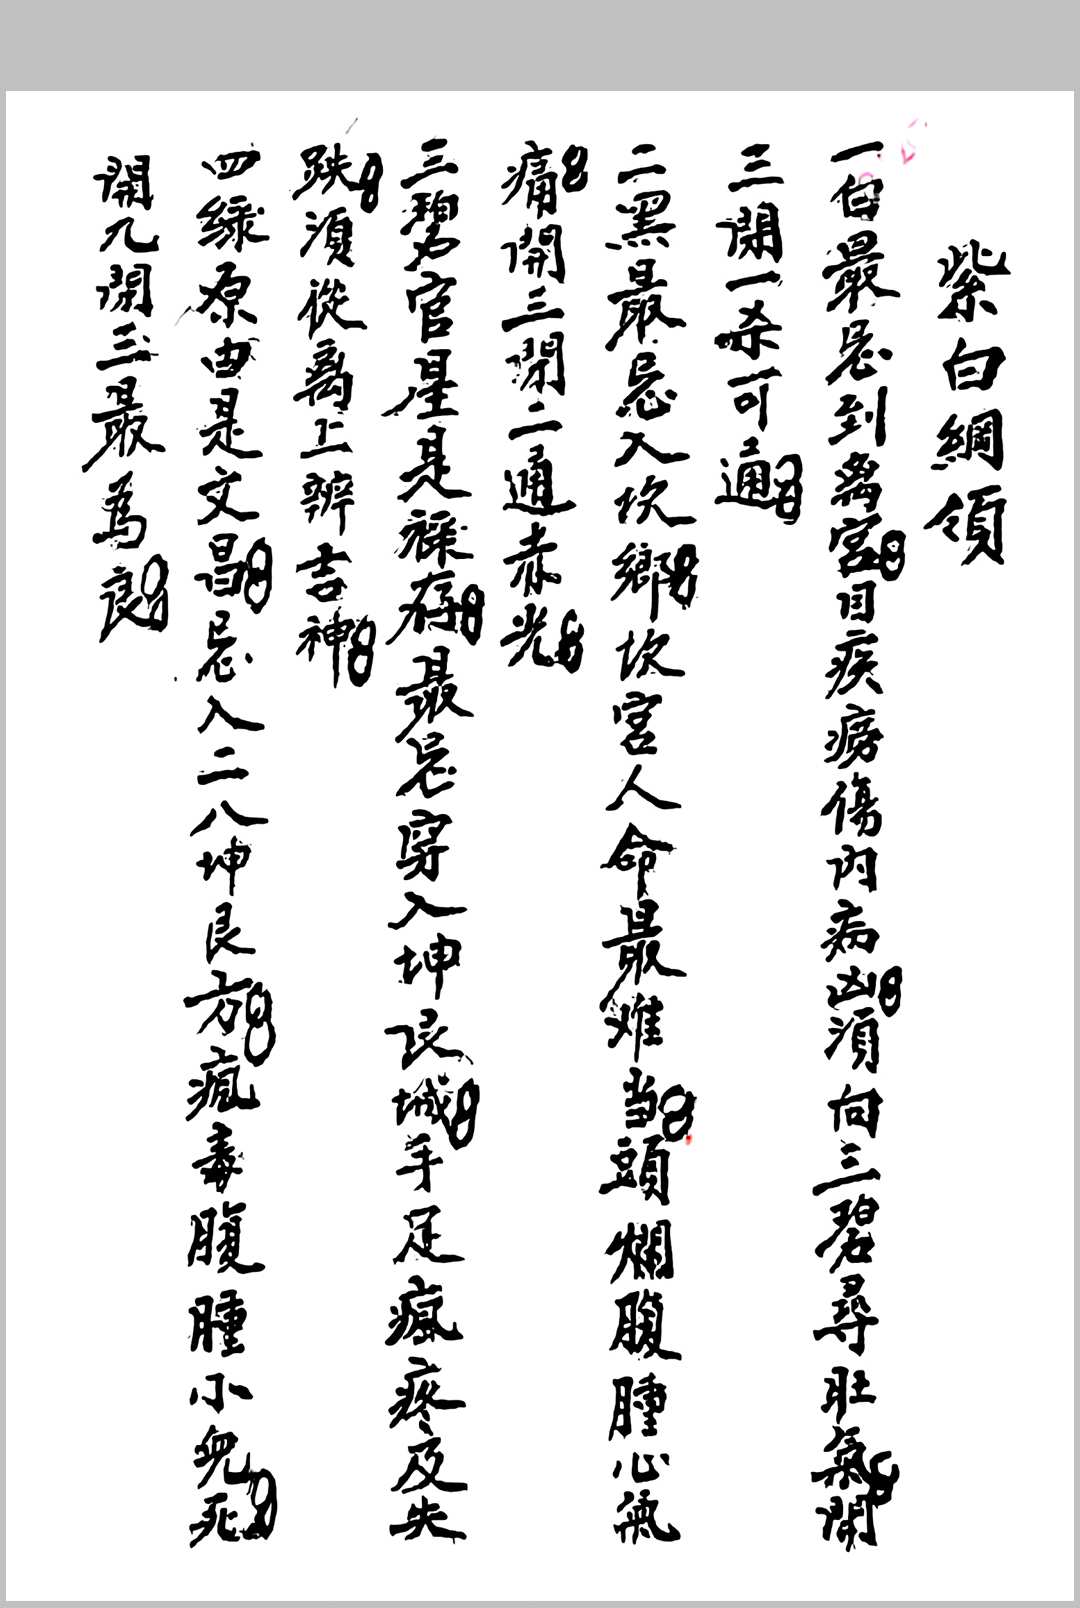 紫白綱領
一白最忌到离宮目疾癆傷內病凶須向三碧尋旺氣開
三閉一杀可通
二黑最忌入坎鄉坎宮人命最难当頭爛腹腫心氣
痛開三閉二通赤光
三碧官星是祿存最忌穿入坤艮城手足瘋疼及失
跌須從离上辨吉神
四綠原由是文昌忌入二八坤艮方瘋毒腹腫小兒死
開九閉三最為良